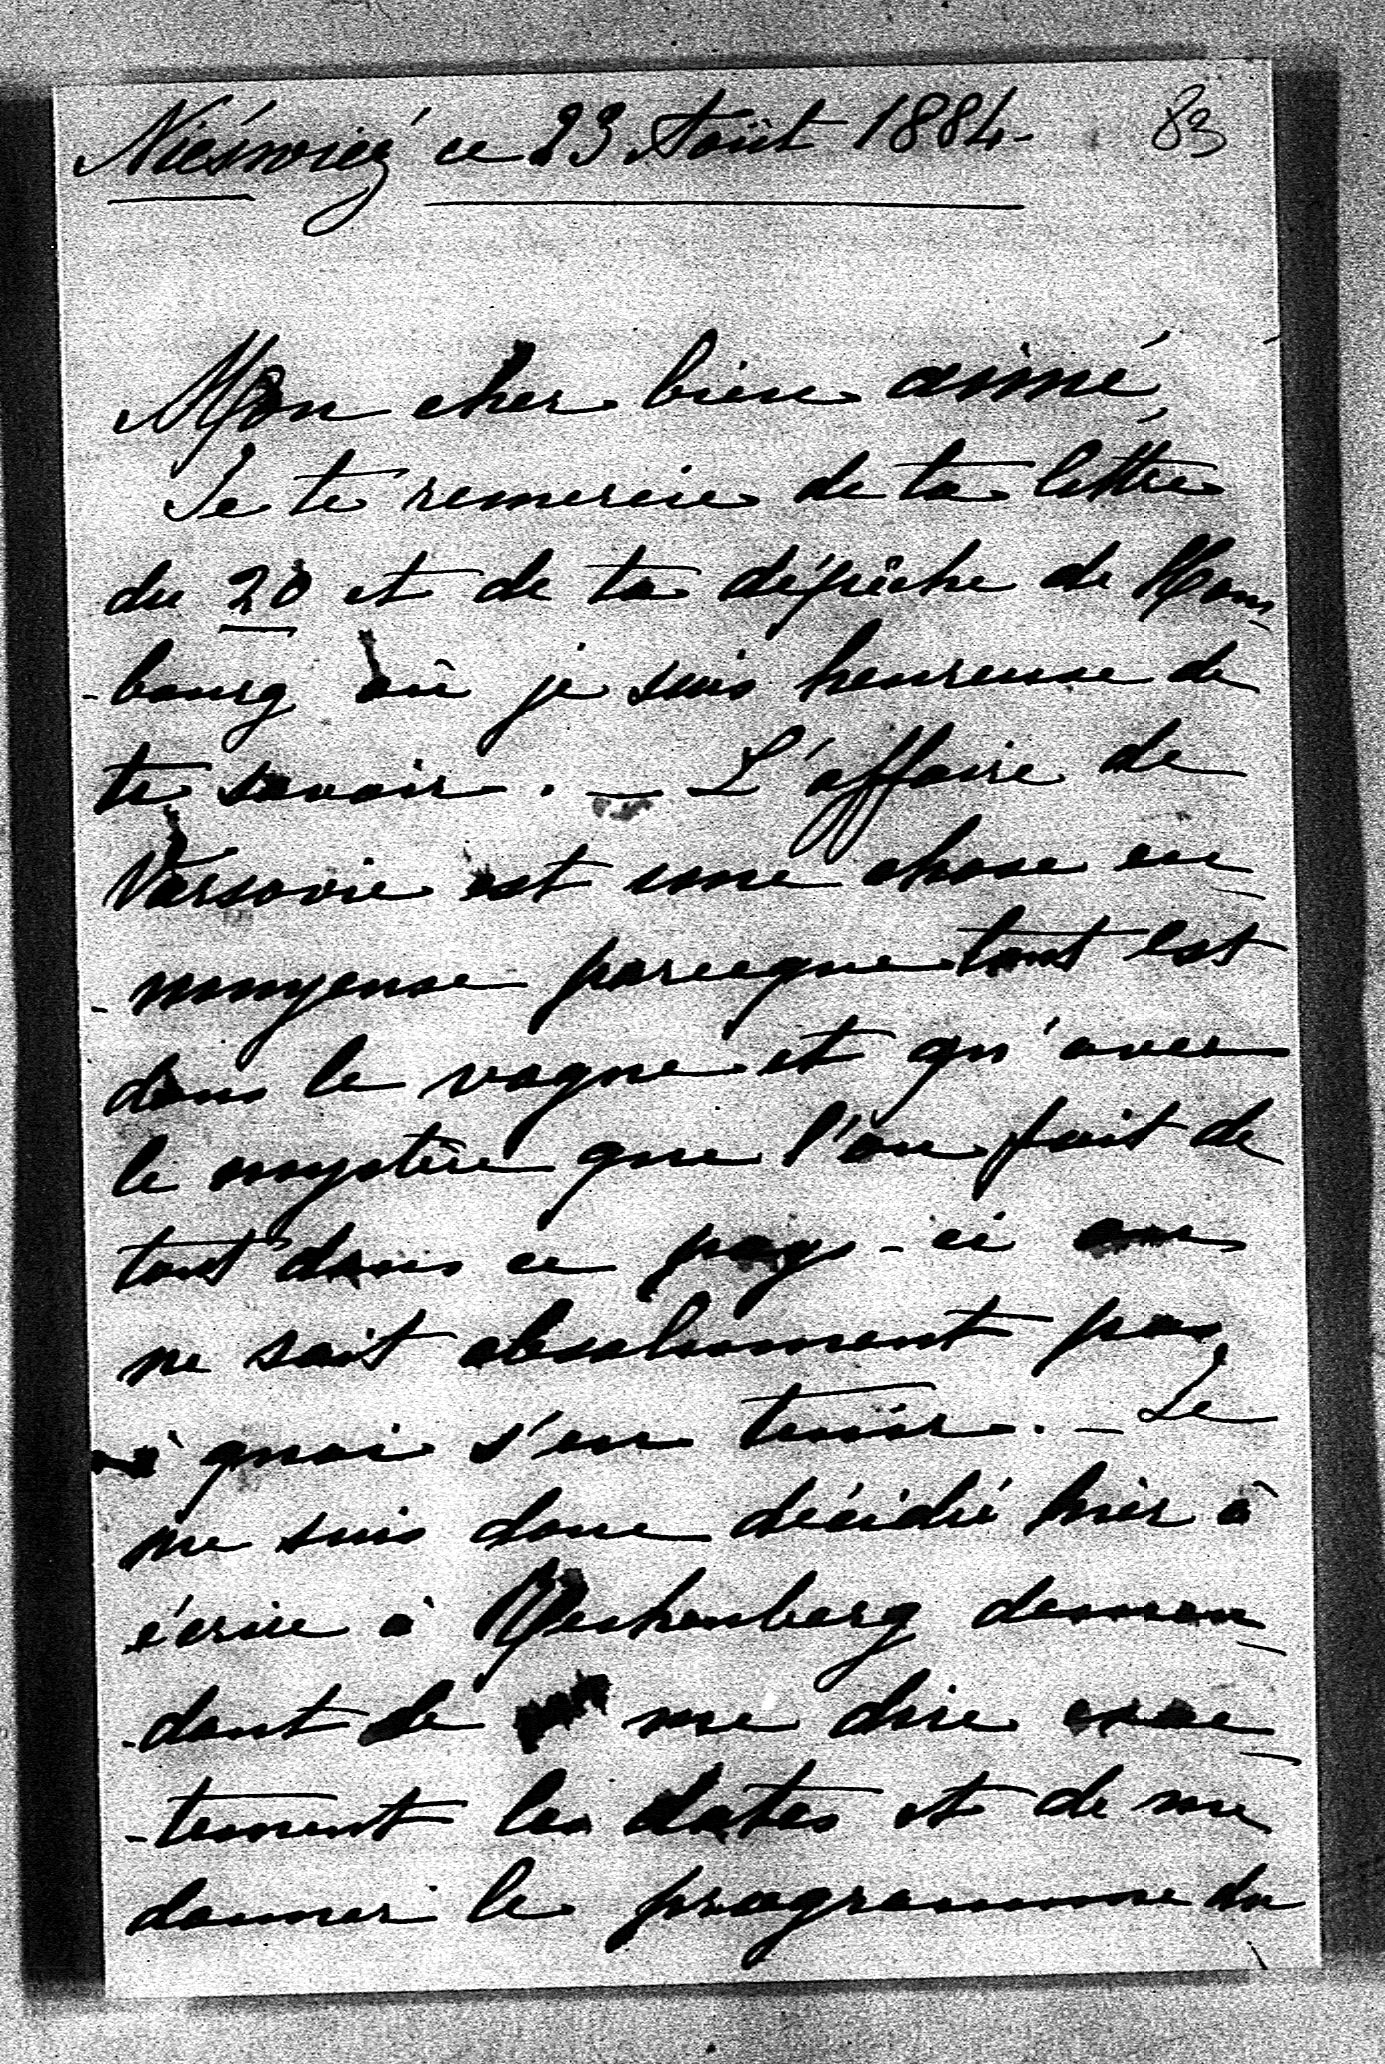 Nieśwież ce 23 Août 1884. 83
Mon cher bien aimé,
Je te remercie de ta lettre
du 20 et de ta dépêche de Hom
-bourg où je suis heureuse de
te savoir. — L'affaire de
Varsovie est une chose en
-nuyeuse parceque tout est
dans le vague et qu'avec
le mystère que l'on fait de
tout dans ce pays-ci on
ne sait absolument pas
à quoi s'en tenir. — Je
me suis donc décidé hier à
écrire à deman
-dant de me dire exac
-tement les dates et de me
donner le programme du